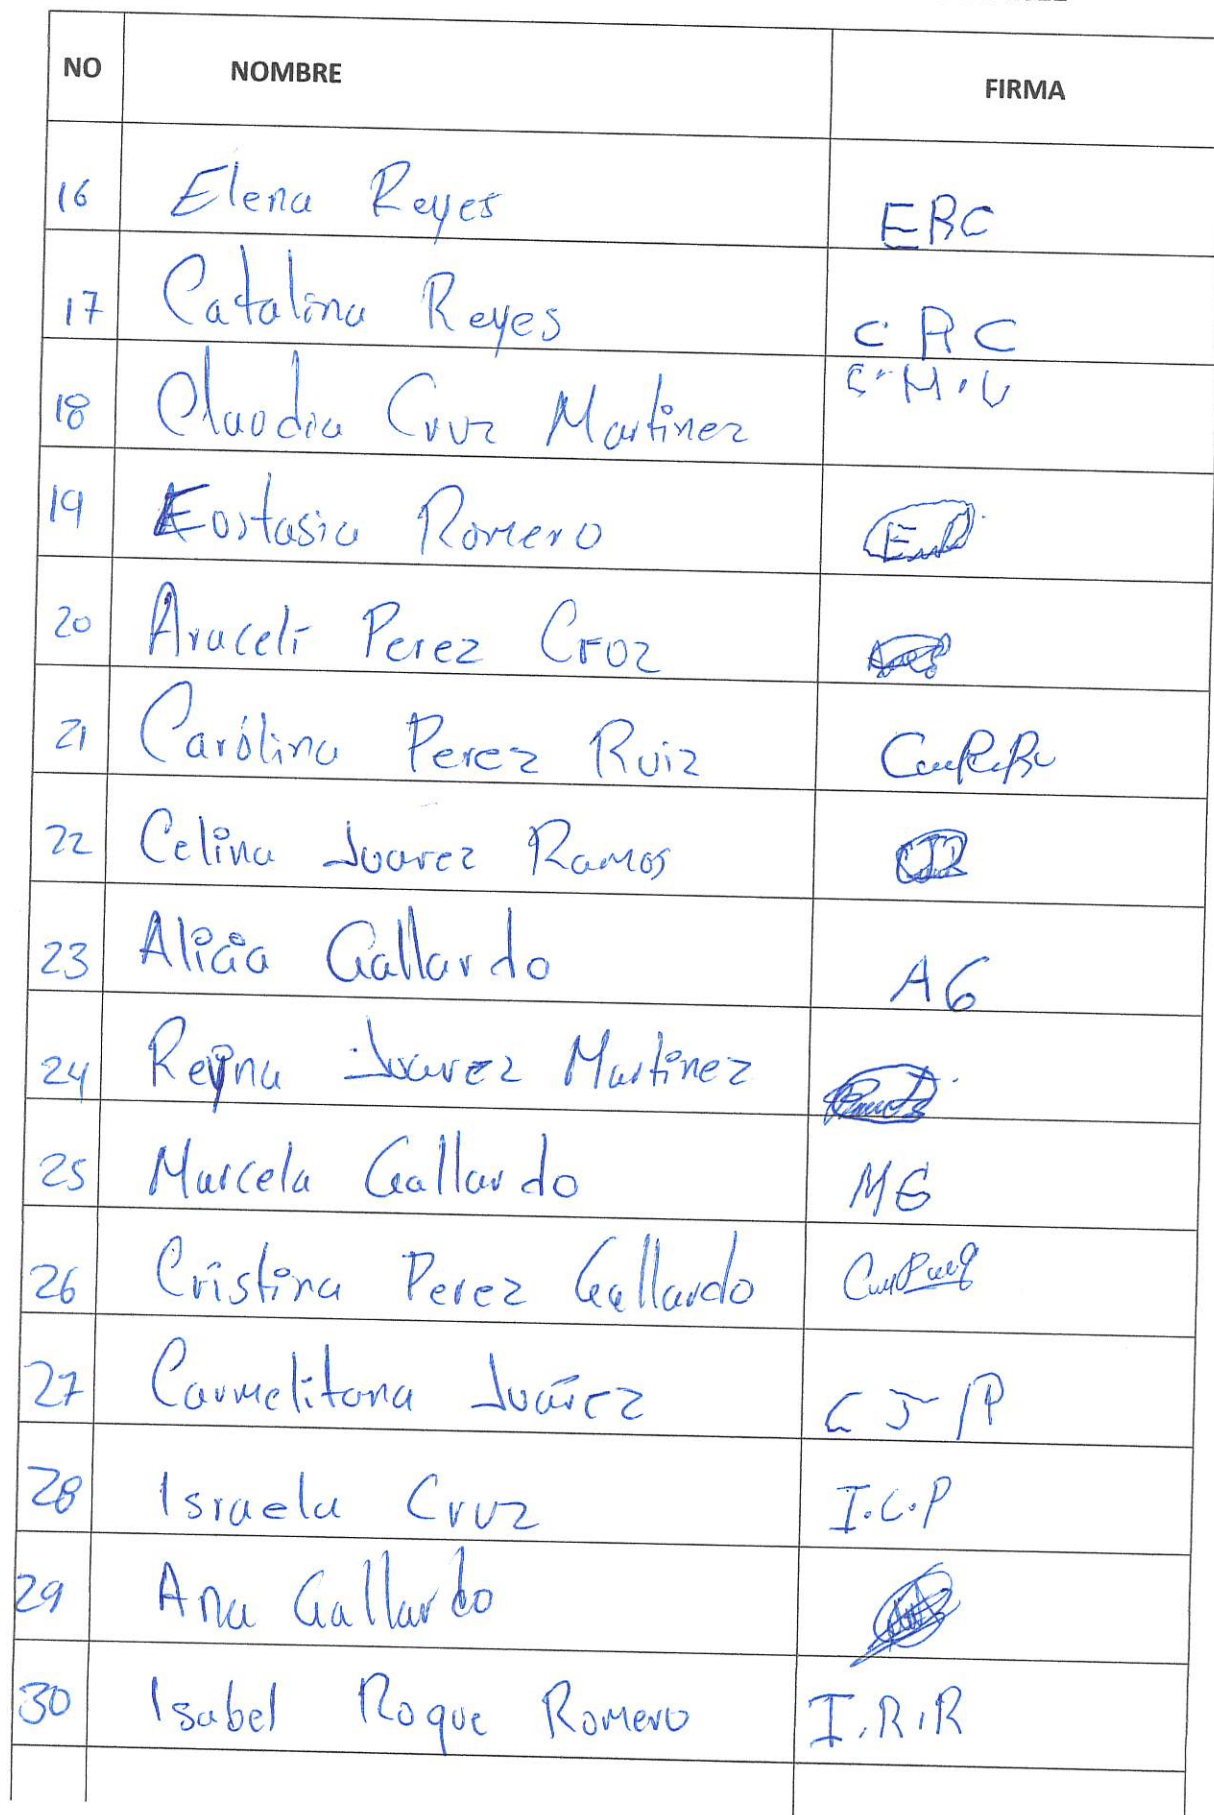 NO NOMBRE FIRMA
16 Elena Reyes ERC
17 Catalina Reyes C R C
18 Claudia Cruz Martinez
19 Eostasia Romero
20 Araceli Perez Croz
21 Carolina Perez Ruiz
22 Celina Juarez Ramos CJR
23 Alicia Gallardo AG
24 Reyna Juarez Martinez
25 Marcela Gallardo MG
26 Cristina Perez Gallardo
27 Carmelitana Juárez C J P
28 Israela Cruz I.C.P
29 Ana Gallardo
30 Isabel Roque Romero I.R.R